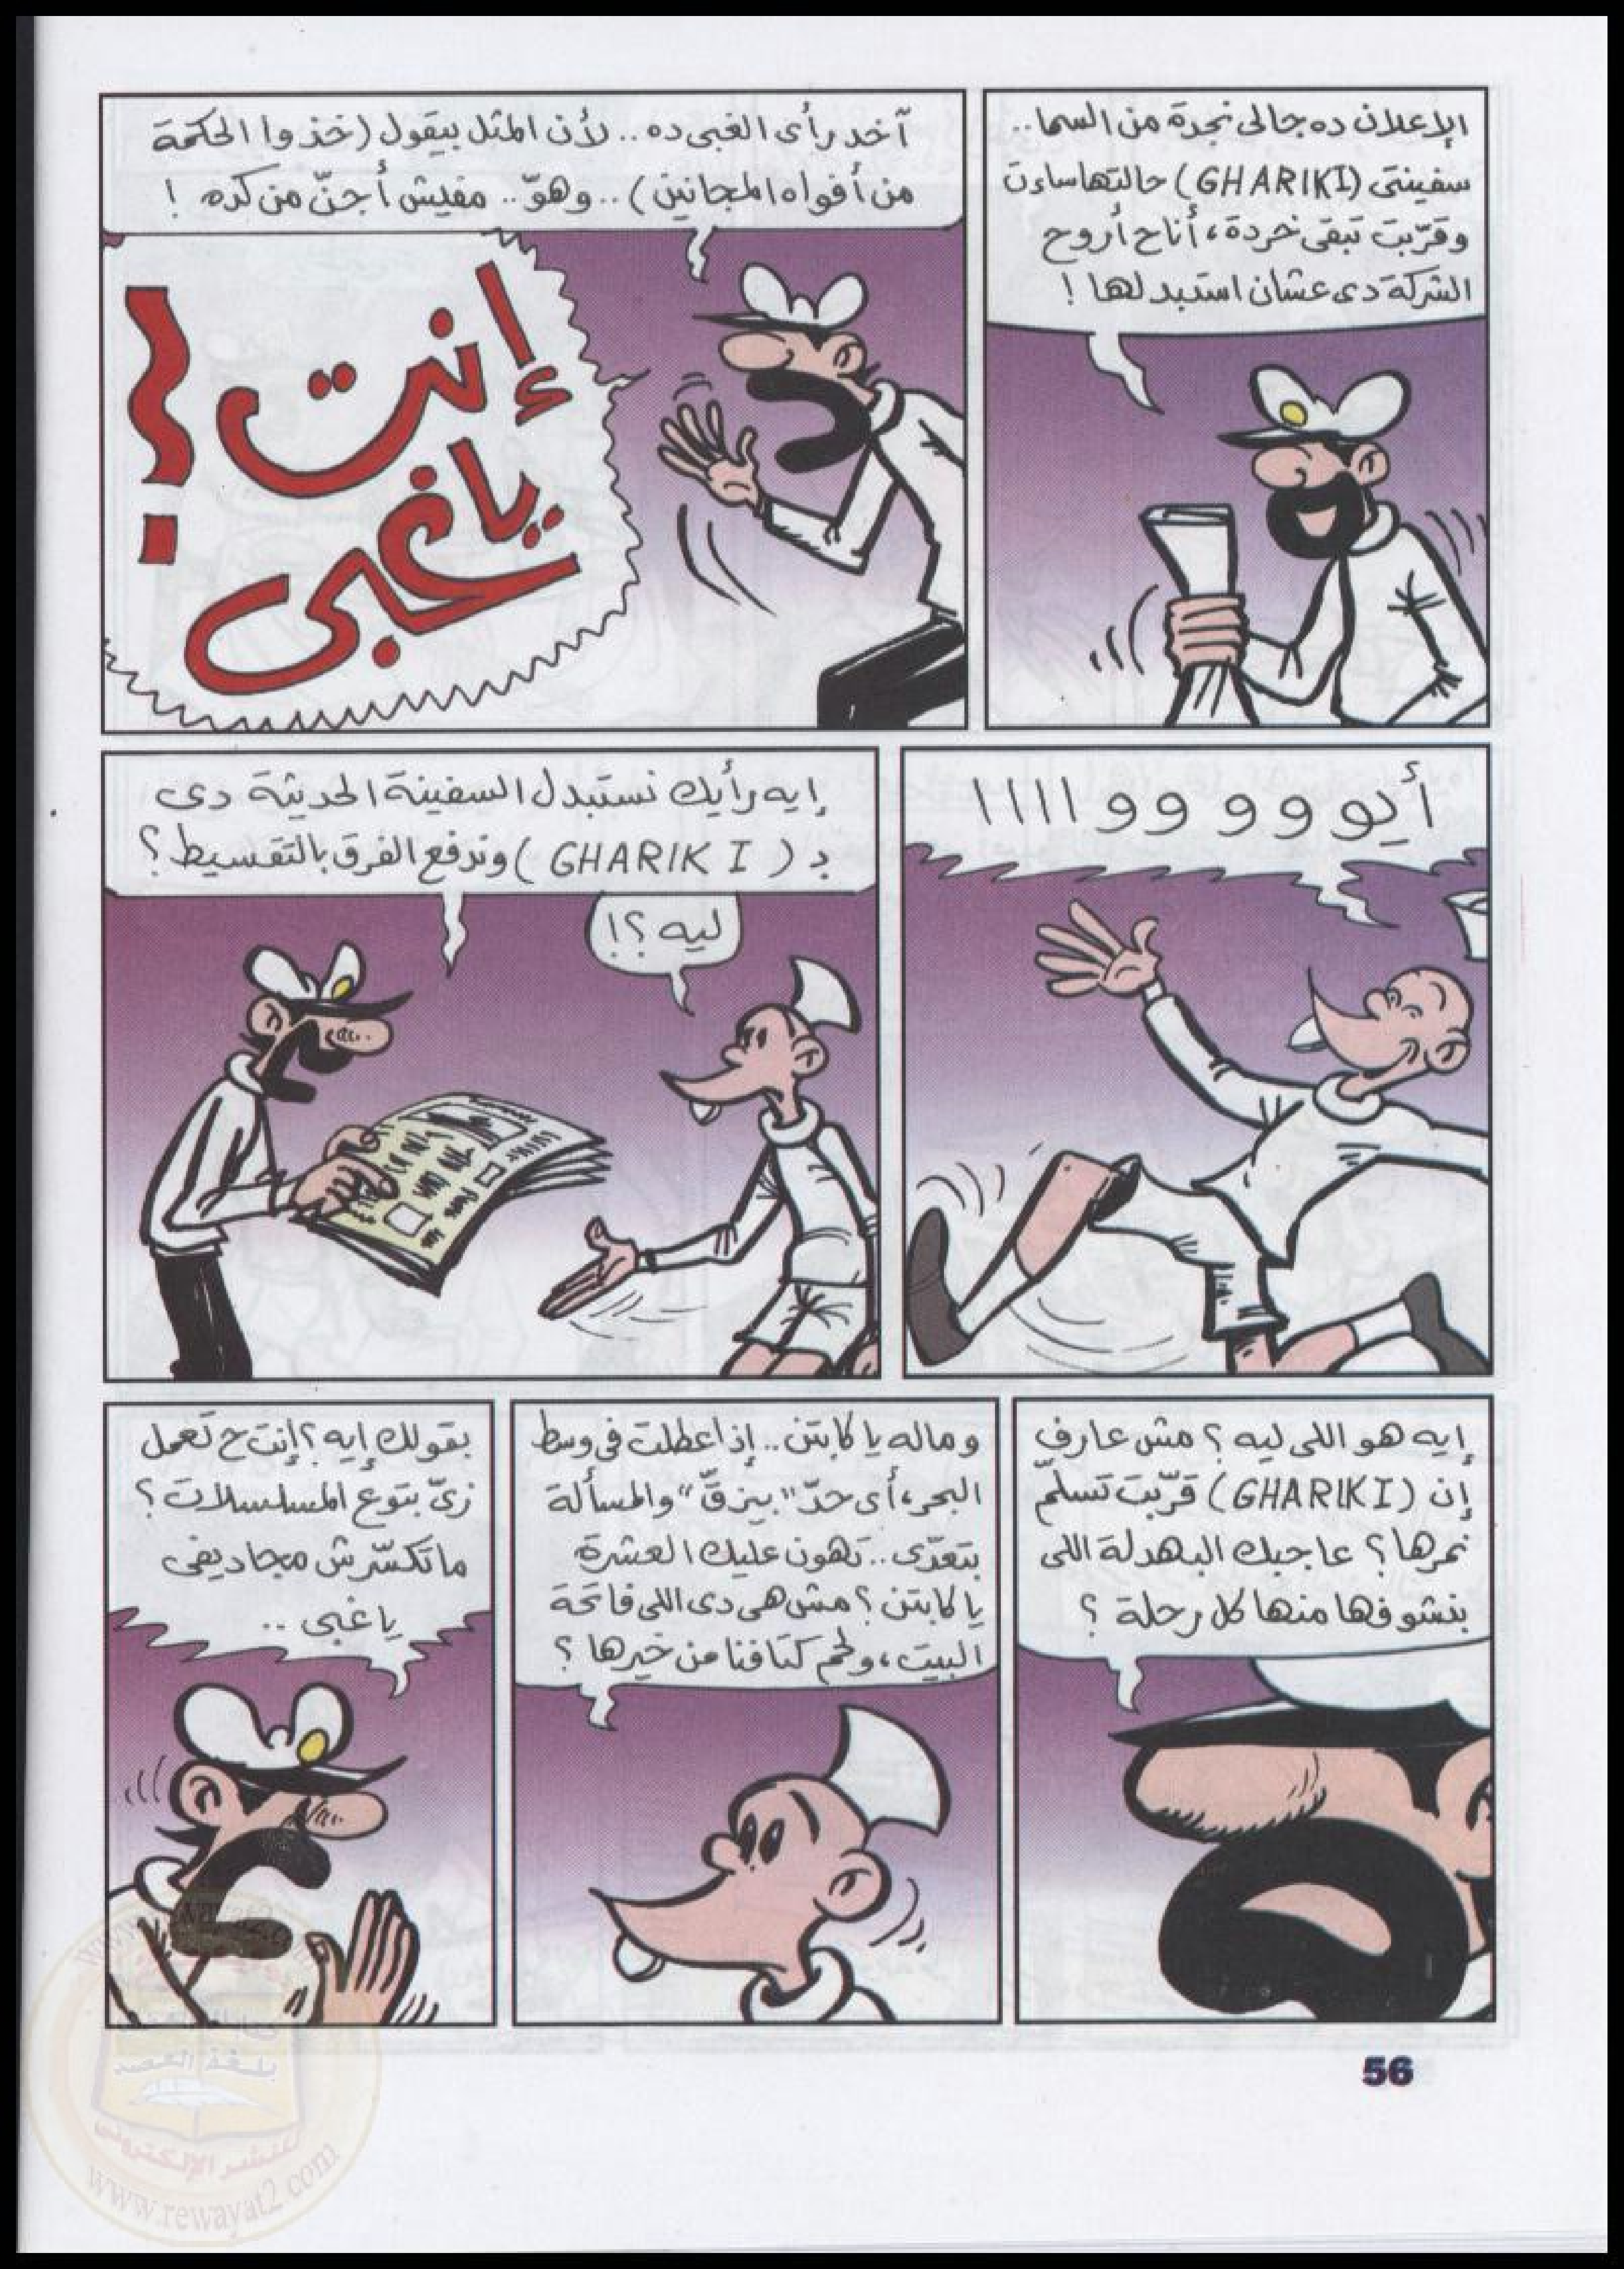 الإعلان ده جالى نجدة من السما..
سفينتى (GHARIKI) حالتها ساءت
وقرّبت تبقى خردة، أنا ح أروح
الشركة دى عشان استبدلها !
آخد رأى الغبى ده.. لأن المثل بيقول (خذوا الحكمة
من أفواه المجانين).. وهوّ.. مفيش أجنّ من كده !
إنت
يا غبى !
أيوووووو ا ا ا ا
إيه رأيك نستبدل السفينة الحديثة دى
بـ ( GHARIK I ) وندفع الفرق بالتقسيط ؟
ليه ؟!
إيه هو اللى ليه ؟ مش عارف
إن (GHARIKI) قرّبت تسلّم
نمرها ؟ عاجبك البهدلة اللى
بنشوفها منها كل رحلة ؟
وماله يا كابتن.. إذا عطلت فى وسط
البحر، أى حدّ "بيزقّ" والمسألة
بتعدّى.. تهون عليك العشرة
يا كابتن ؟ مش هى دى اللى فاتحة
البيت، ولحم كتافنا من خيرها ؟
بقولك إيه ؟ إنت ح تعمل
زىّ بتوع المسلسلات ؟
ماتكسّرش مجاديفى
يا غبى ..
56
بلغة العصر
للنشر الإلكترونى
www.rewayat2.com